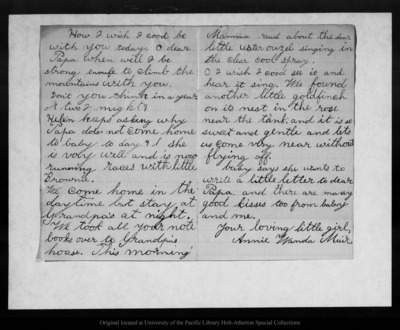 How I wish I cood be
with you today. O dear
Papa when will I be
strong enoufe to climb the
mountains with you.
Dont you think in a year
or two I might?
Helen keeps asking why
Papa dois not come home
to baby to day? & she
is very well and is now
running races with little
Brownie.
We come home in the
day time but stay at
Grandpa's at night.
We took all your note
books over to Grandpa's
house. This morning
Mamma read about the dear
little water ouzel singing in
the clear cool spray.
O I wish I cood see it and
hear it sing. We found
another little goldfinch
on it nest in the rose
near the tank, and it is so
sweet and gentle and lets
us come very near without
flying off.
baby says she wants to
write a little letter to dear
Papa, and there are many
good kisses too from baby
and me,
Your loving little girl,
Annie Wanda Muir
Original located at University of the Pacific Library Holt-Atherton Special Collections